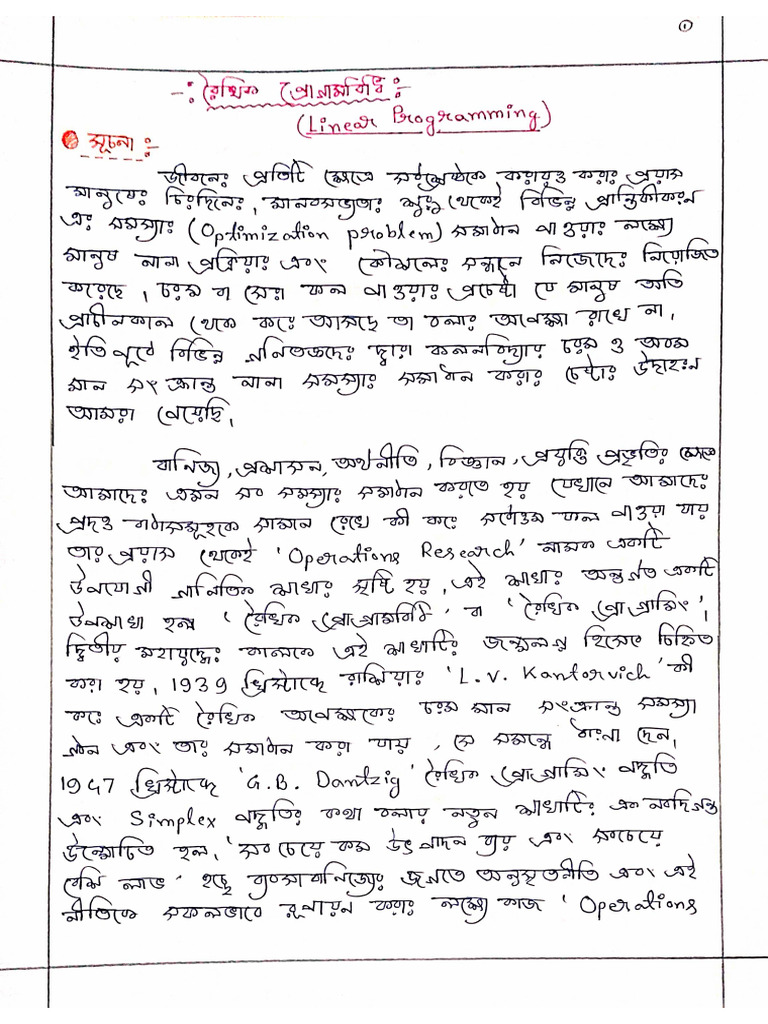 ১
-: রৈখিক প্রোগ্রামবিধি :-
(Linear Programming)
সূচনা :-
জীবনের প্রতিটি ক্ষেত্রে সর্বশ্রেষ্ঠকে করায়ত্ত করার প্রয়াস
মানুষের চিরদিনের, মানবসভ্যতার শুরু থেকেই বিভিন্ন প্রান্তিকীকরন
এর সমস্যার (Optimization problem) সমাধান পাওয়ার লক্ষ্যে
মানুষ নানা প্রক্রিয়ার এবং কৌশলের সন্ধানে নিজেদের নিয়োজিত
করেছে, চরম বা সেরা ফল পাওয়ার প্রচেষ্টা যে মানুষ অতি
প্রাচীনকাল থেকে করে আসছে তা বলার অপেক্ষা রাখে না,
ইতি পূর্বে বিভিন্ন গনিতজ্ঞদের দ্বারা কলনবিদ্যার চরম ও অবম
মান সংক্রান্ত নানা সমস্যার সমাধান করার চেষ্টার উদাহরন
আমরা পেয়েছি,
বানিজ্য, প্রশাসন, অর্থনীতি, বিজ্ঞান, প্রযুক্তি প্রভৃতির ক্ষেত্রে
আমাদের এমন সব সমস্যার সমাধান করতে হয় যেখানে আমাদের
প্রদত্ত শর্তসমূহকে সামনে রেখে কী করে সর্বোত্তম ফল পাওয়া যায়
তার প্রয়াস থেকেই 'Operations Research' নামক একটি
উপযোগী গানিতিক শাখার সৃষ্টি হয়, এই শাখার অন্তর্গত একটি
উপশাখা হল 'রৈখিক প্রোগ্রামবিধি' বা 'রৈখিক প্রোগ্রামিং',
দ্বিতীয় মহাযুদ্ধের কালকে এই শাখাটির জন্মলগ্ন হিসেবে চিহ্নিত
করা হয়, 1939 খ্রিস্টাব্দে রাশিয়ার 'L.V. Kantorvich' কী
করে একটি রৈখিক অপেক্ষকের চরম মান সংক্রান্ত সমস্যা
গঠন এবং তার সমাধান করা যায়, সে সম্বন্ধে ধারনা দেন,
1947 খ্রিস্টাব্দে 'G.B. Dantzig' রৈখিক প্রোগ্রামিং পদ্ধতি
এবং Simplex পদ্ধতির কথা বলায় নতুন শাখাটির এক নবদিগন্ত
উন্মোচিত হল, 'সব চেয়ে কম উৎপাদন ব্যয় এবং সবচেয়ে
বেশি লাভ' হচ্ছে ব্যবসাবানিজ্যের জগতে অনুসৃতনীতি এবং এই
নীতিকে সফলভাবে রূপায়ন করার লক্ষ্যে কাজ 'Operations